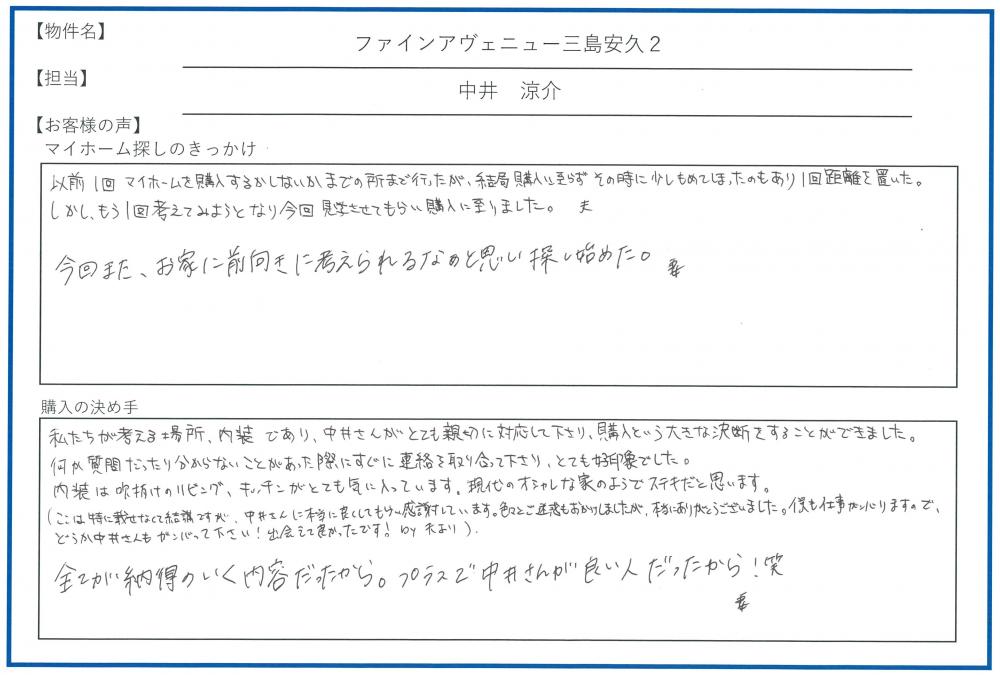 【物件名】
ファインアヴェニュー三島安久２
【担当】
中井　涼介
【お客様の声】
マイホーム探しのきっかけ
以前1回マイホームを購入するかしないかまでの所まで行ったが、結局購入に至らずその時に少しもめてしまったのもあり1回距離を置いた。
しかし、もう1回考えてみようとなり今回見学させてもらい購入に至りました。 夫
今回また、お家に前向きに考えられるなぁと思い探し始めた。 妻
購入の決め手
私たちが考える場所、内装であり、中井さんがとても親切に対応して下さり、購入という大きな決断をすることができました。
何か質問だったり分からないことがあった際にすぐに連絡を取り合って下さり、とても好印象でした。
内装は吹抜けのリビング、キッチンがとても気に入っています。現代のオシャレな家のようでステキだと思います。
(ここは特に載せなくて結構ですが、中井さんに本当に良くしてもらい感謝しています。色々とご迷惑もおかけしましたが、本当にありがとうございました。僕も仕事ガンバりますので、
どうか中井さんもガンバって下さい！出会えて良かったです！by 夫より)
全てが納得のいく内容だったから。プラスで中井さんが良い人だったから！笑
妻